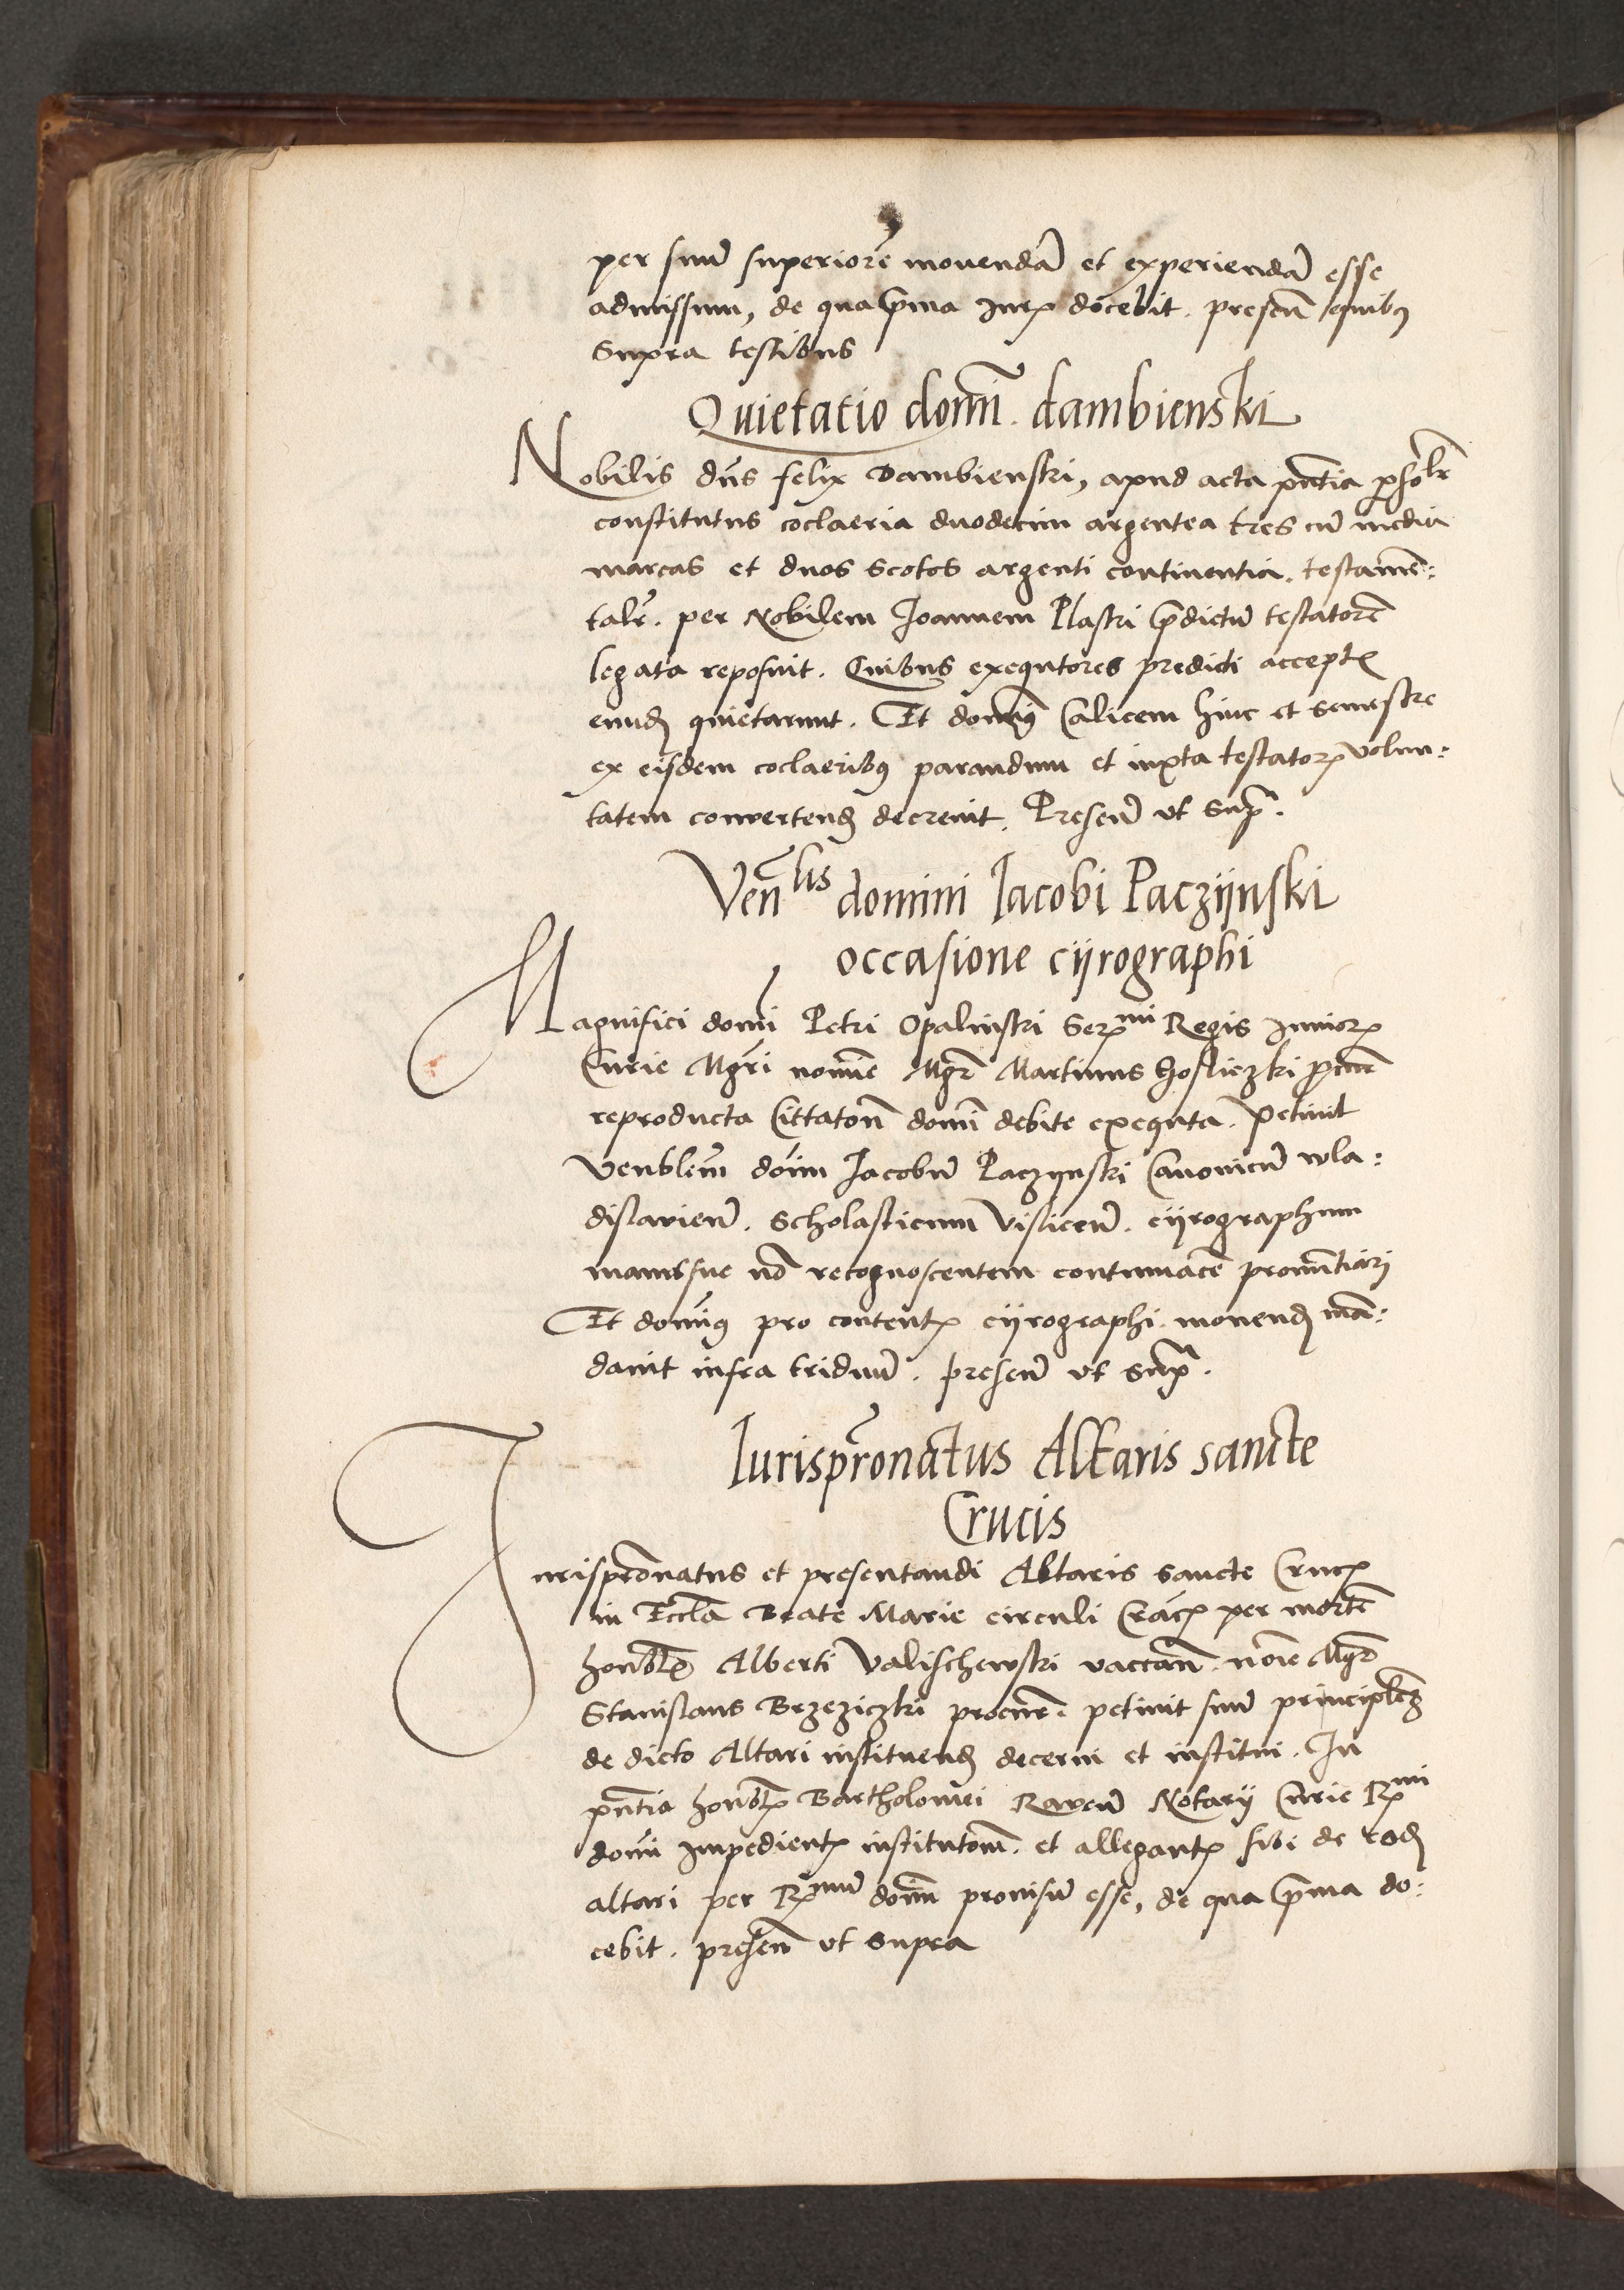 per suu̅ superiore̅ mouenda̅ et experienda̅ esse
admissum, de qua p̅ma Jurꝭ docebit. presen̅ quibꝯ
Supra testibus
Quietatio domi̅. dambienski
Nobilis dn̅s felix Dambienski, apud acta pn̅tia p̲so̅lr̅
constitutus coclaeria duodecim argentea tres cu̅ media
marcas et duos scotos argenti continentia. testame̅:
talr̅. per Nobilem Joannem Plaski p̅dictu̅ testatore̅
legata reposuit. Quibus exequtores predicti acceptꝭ
eund̅ quietarunt. Et dominꝯ Calicem hinc et semestre
ex eisdem coclaeribꝯ parandum et iuxta testatorꝭ volun:
tatem convertend̅ decreuit. Presen̅ vt sup̅.
Ven̅lis domini Jacobi Paczijnski
occasione cijrographi
Magnifici domi̅ Petri Opalinski Serꝭmi Regis Juniorꝭ
Curie Mg̅ri nomi̅e Mgr̅ Martinus Hosliczki p̲cur̅
reproducta Cittaton̅ domi̅ debite exequta. Petiuit
Venblem̅ dom̅ Jacobu̅ Paczynski Canonicu̅ wla:
dislauien̅. Scholasticum Vislicen̅. cijrographum
manus sue no̅ recognoscentem contumace̅ pronu̅tiari
Et dominꝯ pro contentꝭ cijrographi. monend̅ ma̅:
dauit infra triduu̅. presen̅ vt sup̅.
Jurispr̅onatus Altaris sancte
Crucis
Jurispr̅onatus et presentandi Altaris sancte Crucꝭ
in Eccl̅a Beate Marie circuli Cra̅cꝭ per morte̅
honblꝭ Alberti Valischewski vaccan̅. no̅ie Mgr̅
Stanislaus Brzeziczki procur̅. petiuit suu̅ principlem̅
de dicto Altari instituend̅ decerni et institui. In
pn̅tia honblꝭ Bartholomei Rawen̅ Notarij Curie Rꝭmi
domi̅ Impedientꝭ institutom̅. et allegantꝭ sibi de eod̅
altari per Rꝭmum dom̅ prouisu̅ esse, de qua p̅ma do:
cebit. presen̅ vt supra